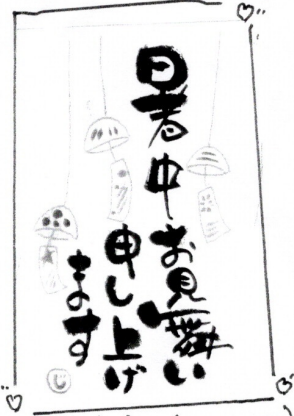 暑中お見舞い
申し上げ
ます
じ